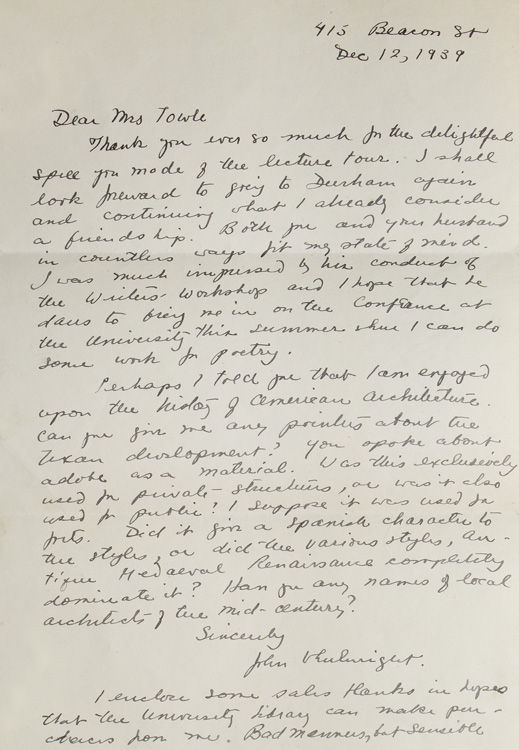 415 Beacon St
Dec 12, 1939
Dear Mrs Towle
Thank you ever so much for the delightful
spell you made of the lecture tour. I shall
look forward to going to Durham again
and continuing what I already consider
a friendship. Both you and your husband
in countless ways fit my state of mind.
I was much impressed by his conduct of
the Writers' Workshop and I hope that he
dares to bring me in on the Conference at
the University this summer where I can do
some work for poetry.
Perhaps I told you that I am engaged
upon the history of American architecture.
Can you give me any pointers about the
Texan development? You spoke about
adobe as a material. Was this exclusively
used for private structures, or was it also
used for public? I suppose it was used for
forts. Did it give a Spanish character to
the styles, or did the various styles, An-
tique Medaeval Renaissance completely
dominate it? Have you any names of local
architects of the mid-century?
Sincerely
John Wheelwright.
I enclose some sales in hopes
that the University library can make pur-
chases from me. Bad manners, but sensible